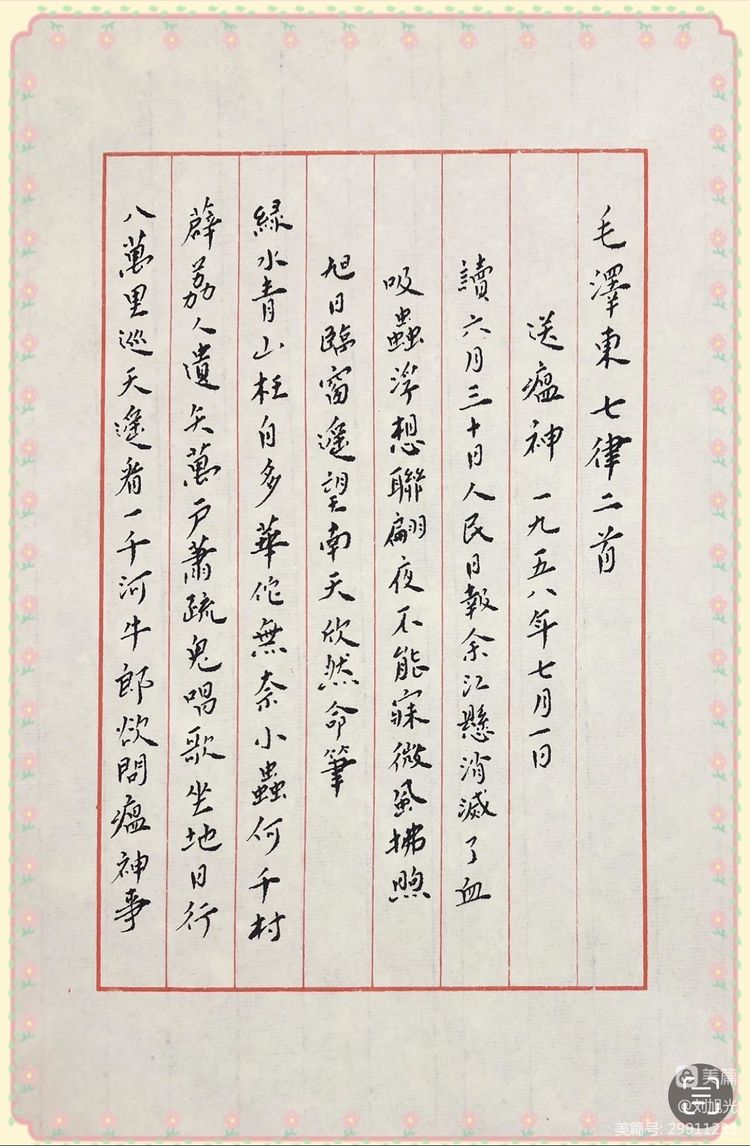 毛澤東七律二首
送瘟神一九五八年七月一日
讀六月三十日人民日報余江懸消滅了血
吸蟲浮想聯翩夜不能寐微風拂煦
旭日臨窗遥望南天欣然命筆
緑水青山枉自多華佗無奈小蟲何千村
薜荔人遺矢萬户蕭疏鬼唱歌坐地日行
八萬里巡天遥看一千河牛郎欲問瘟神事
美篇
@刘旭光
美篇号: